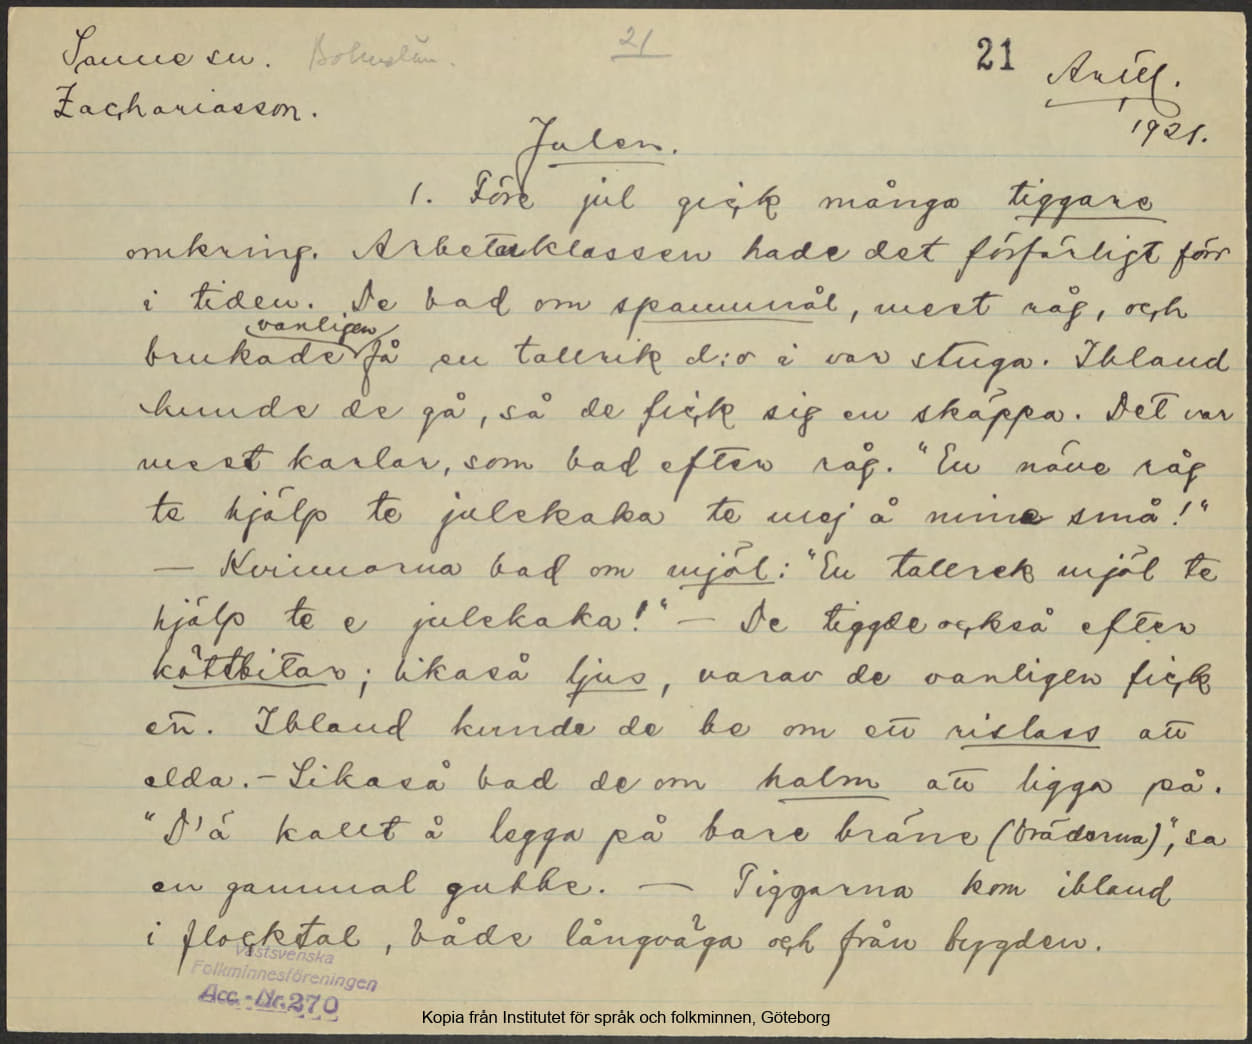 Sanne sn. Bohuslän. 21 21 April.
Zachariasson. 1921.
Julen.
1. Före jul gick många tiggare
omkring. Arbetareklassen hade det förfärligt förr
i tiden. De bad om spannmål, mest råg, och
vanligen
brukade få en tallrik d:o i var stuga. Ibland
kunde de gå, så de fick sig en skäppa. Det var
mest karlar, som bad efter råg. "En näve råg
te hjälp te julekaka te mej å mine små!"
— Kvinnorna bad om mjöl: "En tallrek mjöl te
hjälp te e julekaka!" — De tiggde också efter
köttbitar; likaså ljus, varav de vanligen fick
ett. Ibland kunde de be om ett rislass att
elda. – Likaså bad de om halm att ligga på.
"D'ä kallt å legga på bare bräne (bräderna)", sa
en gammal gubbe. — Tiggarna kom ibland
i flocktal, både långväga och från bygden.
Västsvenska
Folkminnesföreningen
Acc.-Nr. 270
Kopia från Institutet för språk och folkminnen, Göteborg